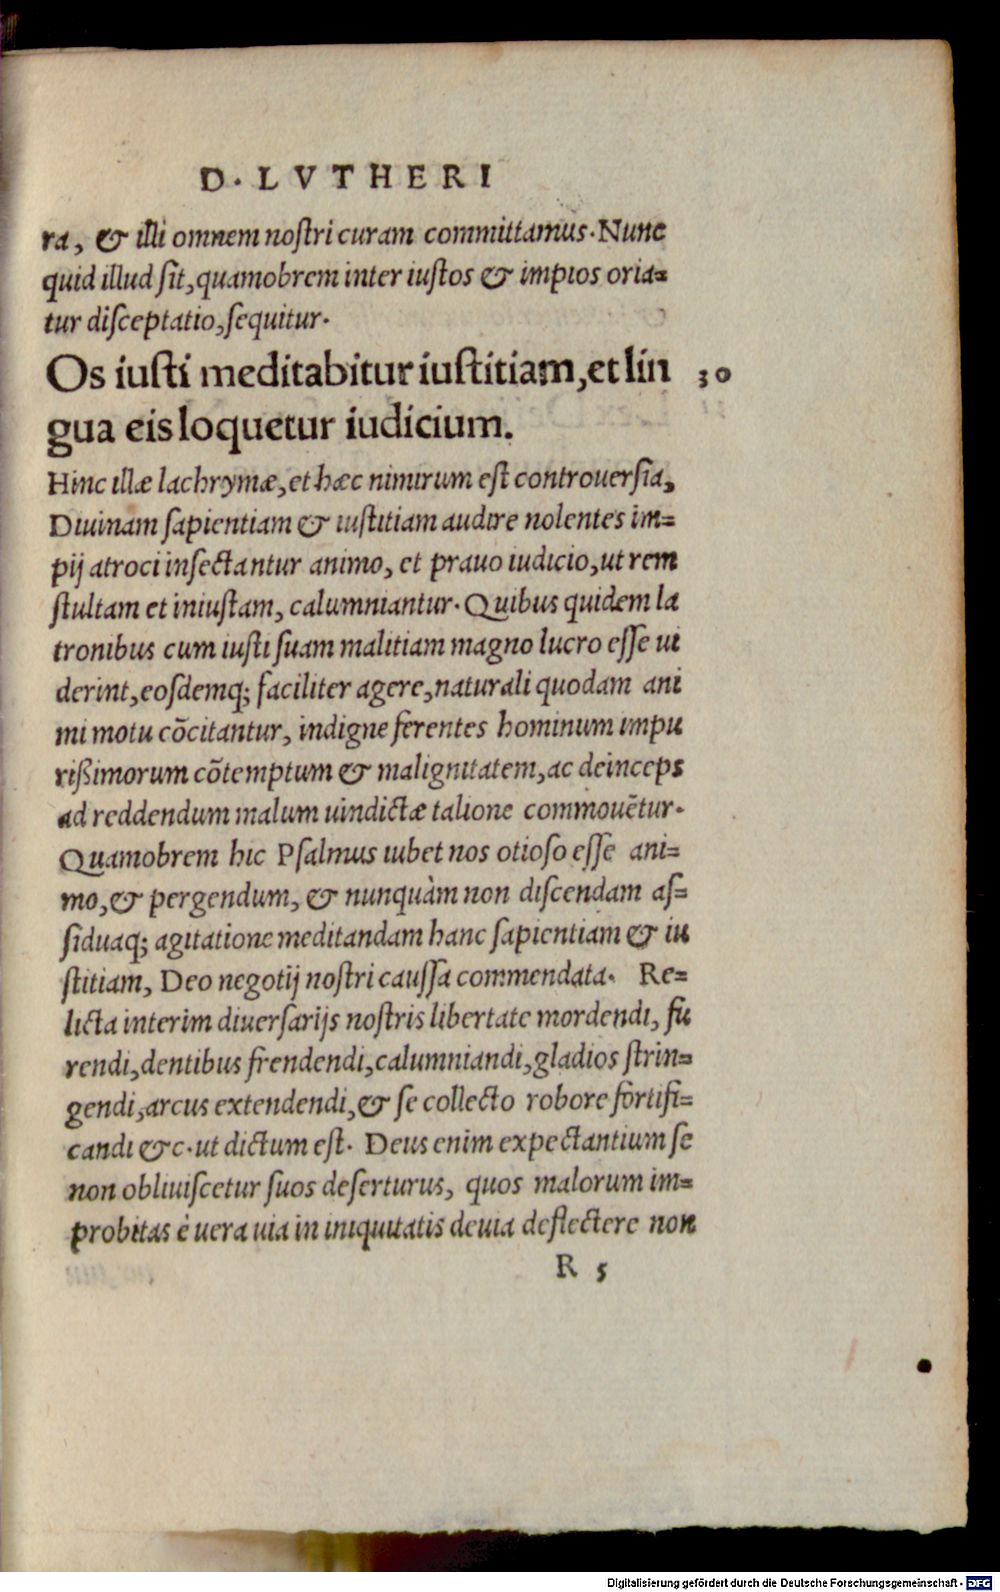 D. LVTHERI
ra, & illi omnem noſtri curam committamus. Nunc
quid illud ſit, quamobrem inter iuſtos & impios oria=
tur diſceptatio, ſequitur.
Os iuſti meditabitur iuſtitiam, et lin 30
gua eis loquetur iudicium.
Hinc illæ lachrymæ, et hæc nimirum eſt controuerſia,
Diuinam ſapientiam & iuſtitiam audire nolentes im=
pij atroci inſectantur animo, et prauo iudicio, ut rem
ſtultam et iniuſtam, calumniantur. Quibus quidem la
tronibus cum iuſti ſuam malitiam magno lucro eſſe ui
derint, eoſdemq; faciliter agere, naturali quodam ani
mi motu cõcitantur, indigne ferentes hominum impu
rißimorum cõtemptum & malignitatem, ac deinceps
ad reddendum malum uindictæ talione commouẽtur.
Quamobrem hic Pſalmus iubet nos otioſo eſſe ani=
mo, & pergendum, & nunquàm non diſcendam aſ=
ſiduaq; agitatione meditandam hanc ſapientiam & iu
ſtitiam, Deo negotij noſtri cauſſa commendata. Re=
licta interim diuerſarijs noſtris libertate mordendi, fu
rendi, dentibus frendendi, calumniandi, gladios ſtrin=
gendi, arcus extendendi, & ſe collecto robore fortifi=
candi &c. ut dictum eſt. Deus enim expectantium ſe
non obliuiſcetur ſuos deſerturus, quos malorum im=
probitas è uera uia in iniquitatis deuia deflectere non
R 5
Digitalisierung gefördert durch die Deutsche Forschungsgemeinschaft - DFG